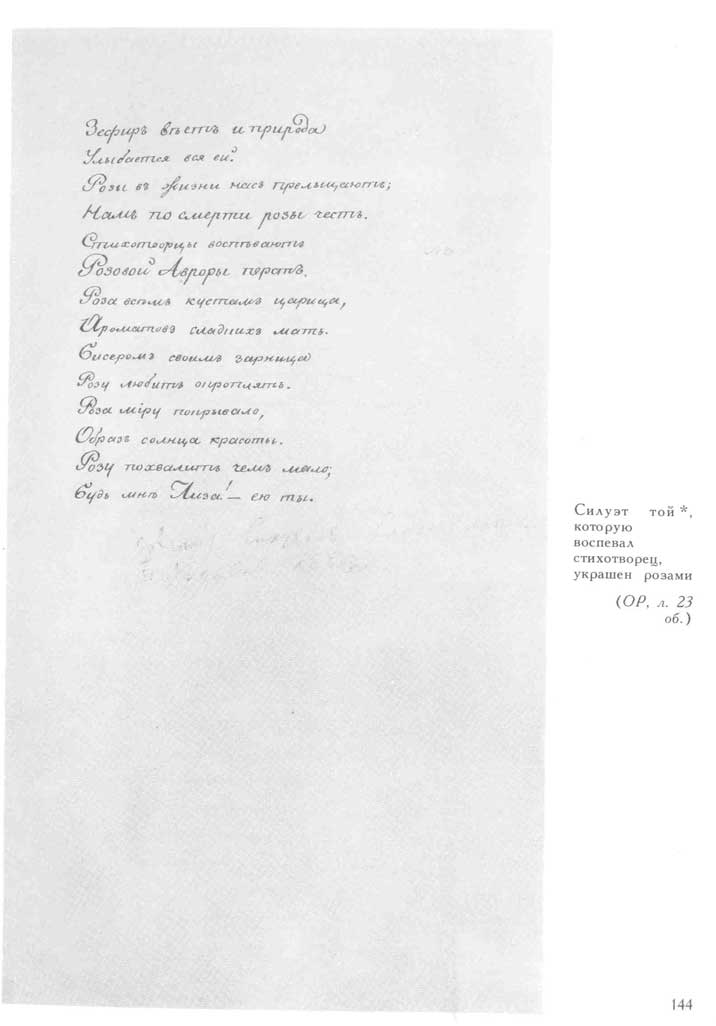 Зефиръ вѣетъ и природа
Улыбается вся ей.
Розы въ жизни насъ прельщаютъ;
Намъ по смерти розы честь.
Стихотворцы воспѣваютъ
Розовой Авроры перстъ.
Роза всѣмъ кустамъ царица,
Ароматовъ сладкихъ мать.
Бисеромъ своимъ зарница
Розу любитъ окроплять.
Роза міру покрывало,
Образъ солнца красоты.
Розу похвалить чемъ мало;
Будь мнѣ Лиза! — ею ты.
Силуэт той *,
которую
воспевал
стихотворец,
украшен розами
(ОР, л. 23
об.)
144